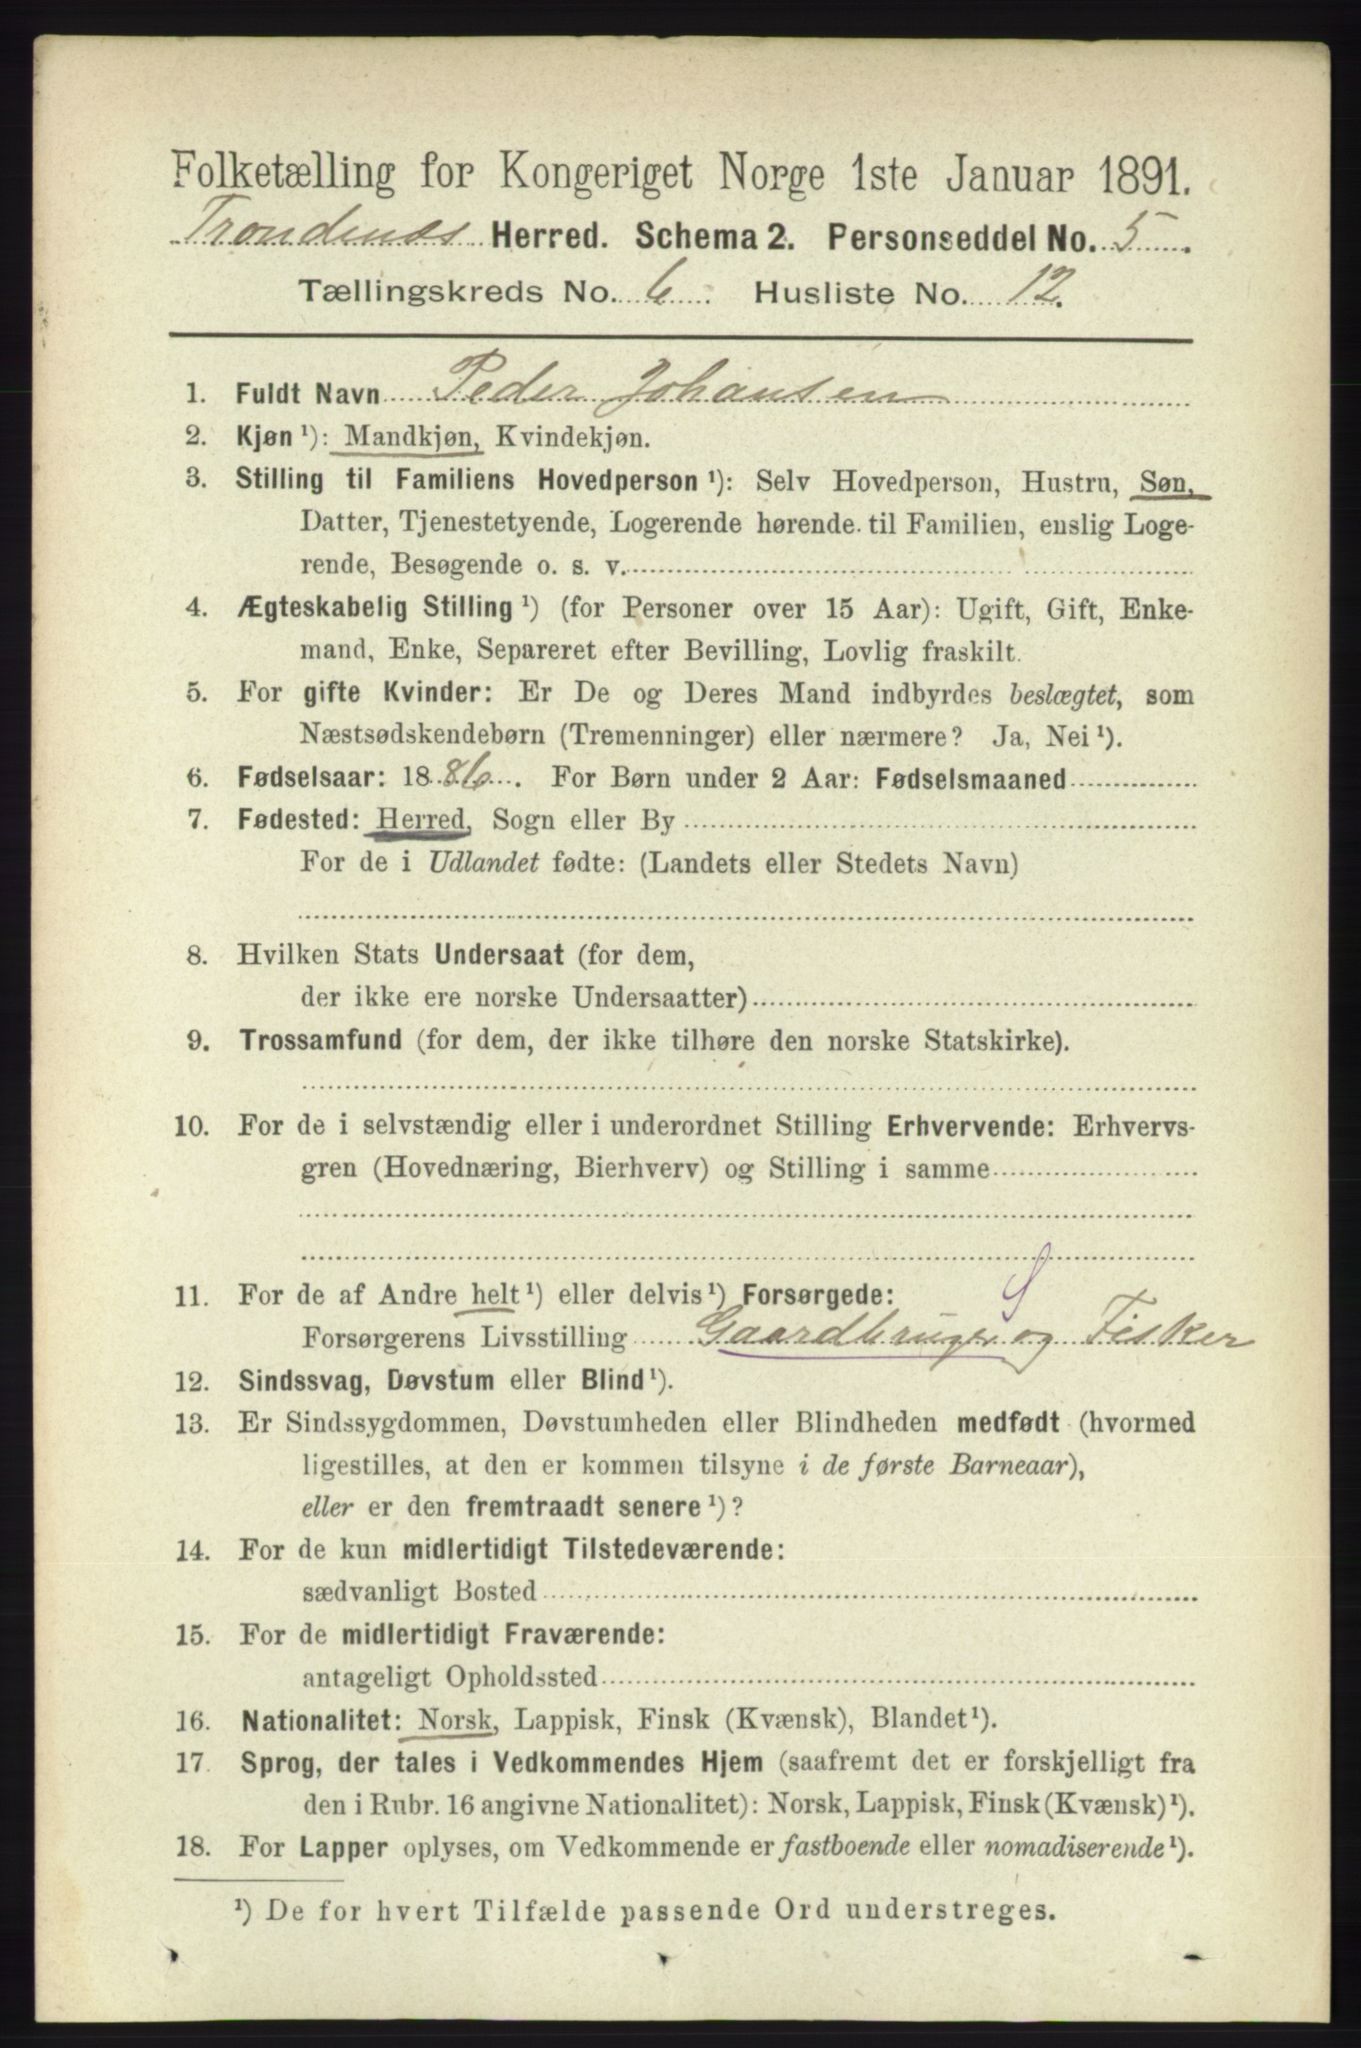 Folketælling for Kongeriget Norge 1ste Januar 1891.
Trondenæs Herred. Schema 2. Personseddel No. 5.
Tællingskreds No. 6. Husliste No. 12.
1. Fuldt Navn Peder Johansen
2. Kjøn ¹): Mandkjøn, Kvindekjøn.
3. Stilling til Familiens Hovedperson ¹): Selv Hovedperson, Hustru, Søn,
Datter, Tjenestetyende, Logerende hørende til Familien, enslig Loge-
rende, Besøgende o. s. v.
4. Ægteskabelig Stilling ¹) (for Personer over 15 Aar): Ugift, Gift, Enke-
mand, Enke, Separeret efter Bevilling, Lovlig fraskilt.
5. For gifte Kvinder: Er De og Deres Mand indbyrdes beslægtet, som
Næstsødskendebørn (Tremenninger) eller nærmere? Ja, Nei ¹).
6. Fødselsaar: 1886. For Børn under 2 Aar: Fødselsmaaned
7. Fødested: Herred, Sogn eller By
For de i Udlandet fødte: (Landets eller Stedets Navn)
8. Hvilken Stats Undersaat (for dem,
der ikke ere norske Undersaatter)
9. Trossamfund (for dem, der ikke tilhøre den norske Statskirke).
10. For de i selvstændig eller i underordnet Stilling Erhvervende: Erhvervs-
gren (Hovednæring, Bierhverv) og Stilling i samme
S
11. For de af Andre helt ¹) eller delvis ¹) Forsørgede:
Forsørgerens Livsstilling Gaardbruger og Fisker
12. Sindssvag, Døvstum eller Blind ¹).
13. Er Sindssygdommen, Døvstumheden eller Blindheden medfødt (hvormed
ligestilles, at den er kommen tilsyne i de første Barneaar),
eller er den fremtraadt senere ¹)?
14. For de kun midlertidigt Tilstedeværende:
sædvanligt Bosted
15. For de midlertidigt Fraværende:
antageligt Opholdssted
16. Nationalitet: Norsk, Lappisk, Finsk (Kvænsk), Blandet ¹).
17. Sprog, der tales i Vedkommendes Hjem (saafremt det er forskjelligt fra
den i Rubr. 16 angivne Nationalitet): Norsk, Lappisk, Finsk (Kvænsk) ¹).
18. For Lapper oplyses, om Vedkommende er fastboende eller nomadiserende ¹).
¹) De for hvert Tilfælde passende Ord understreges.